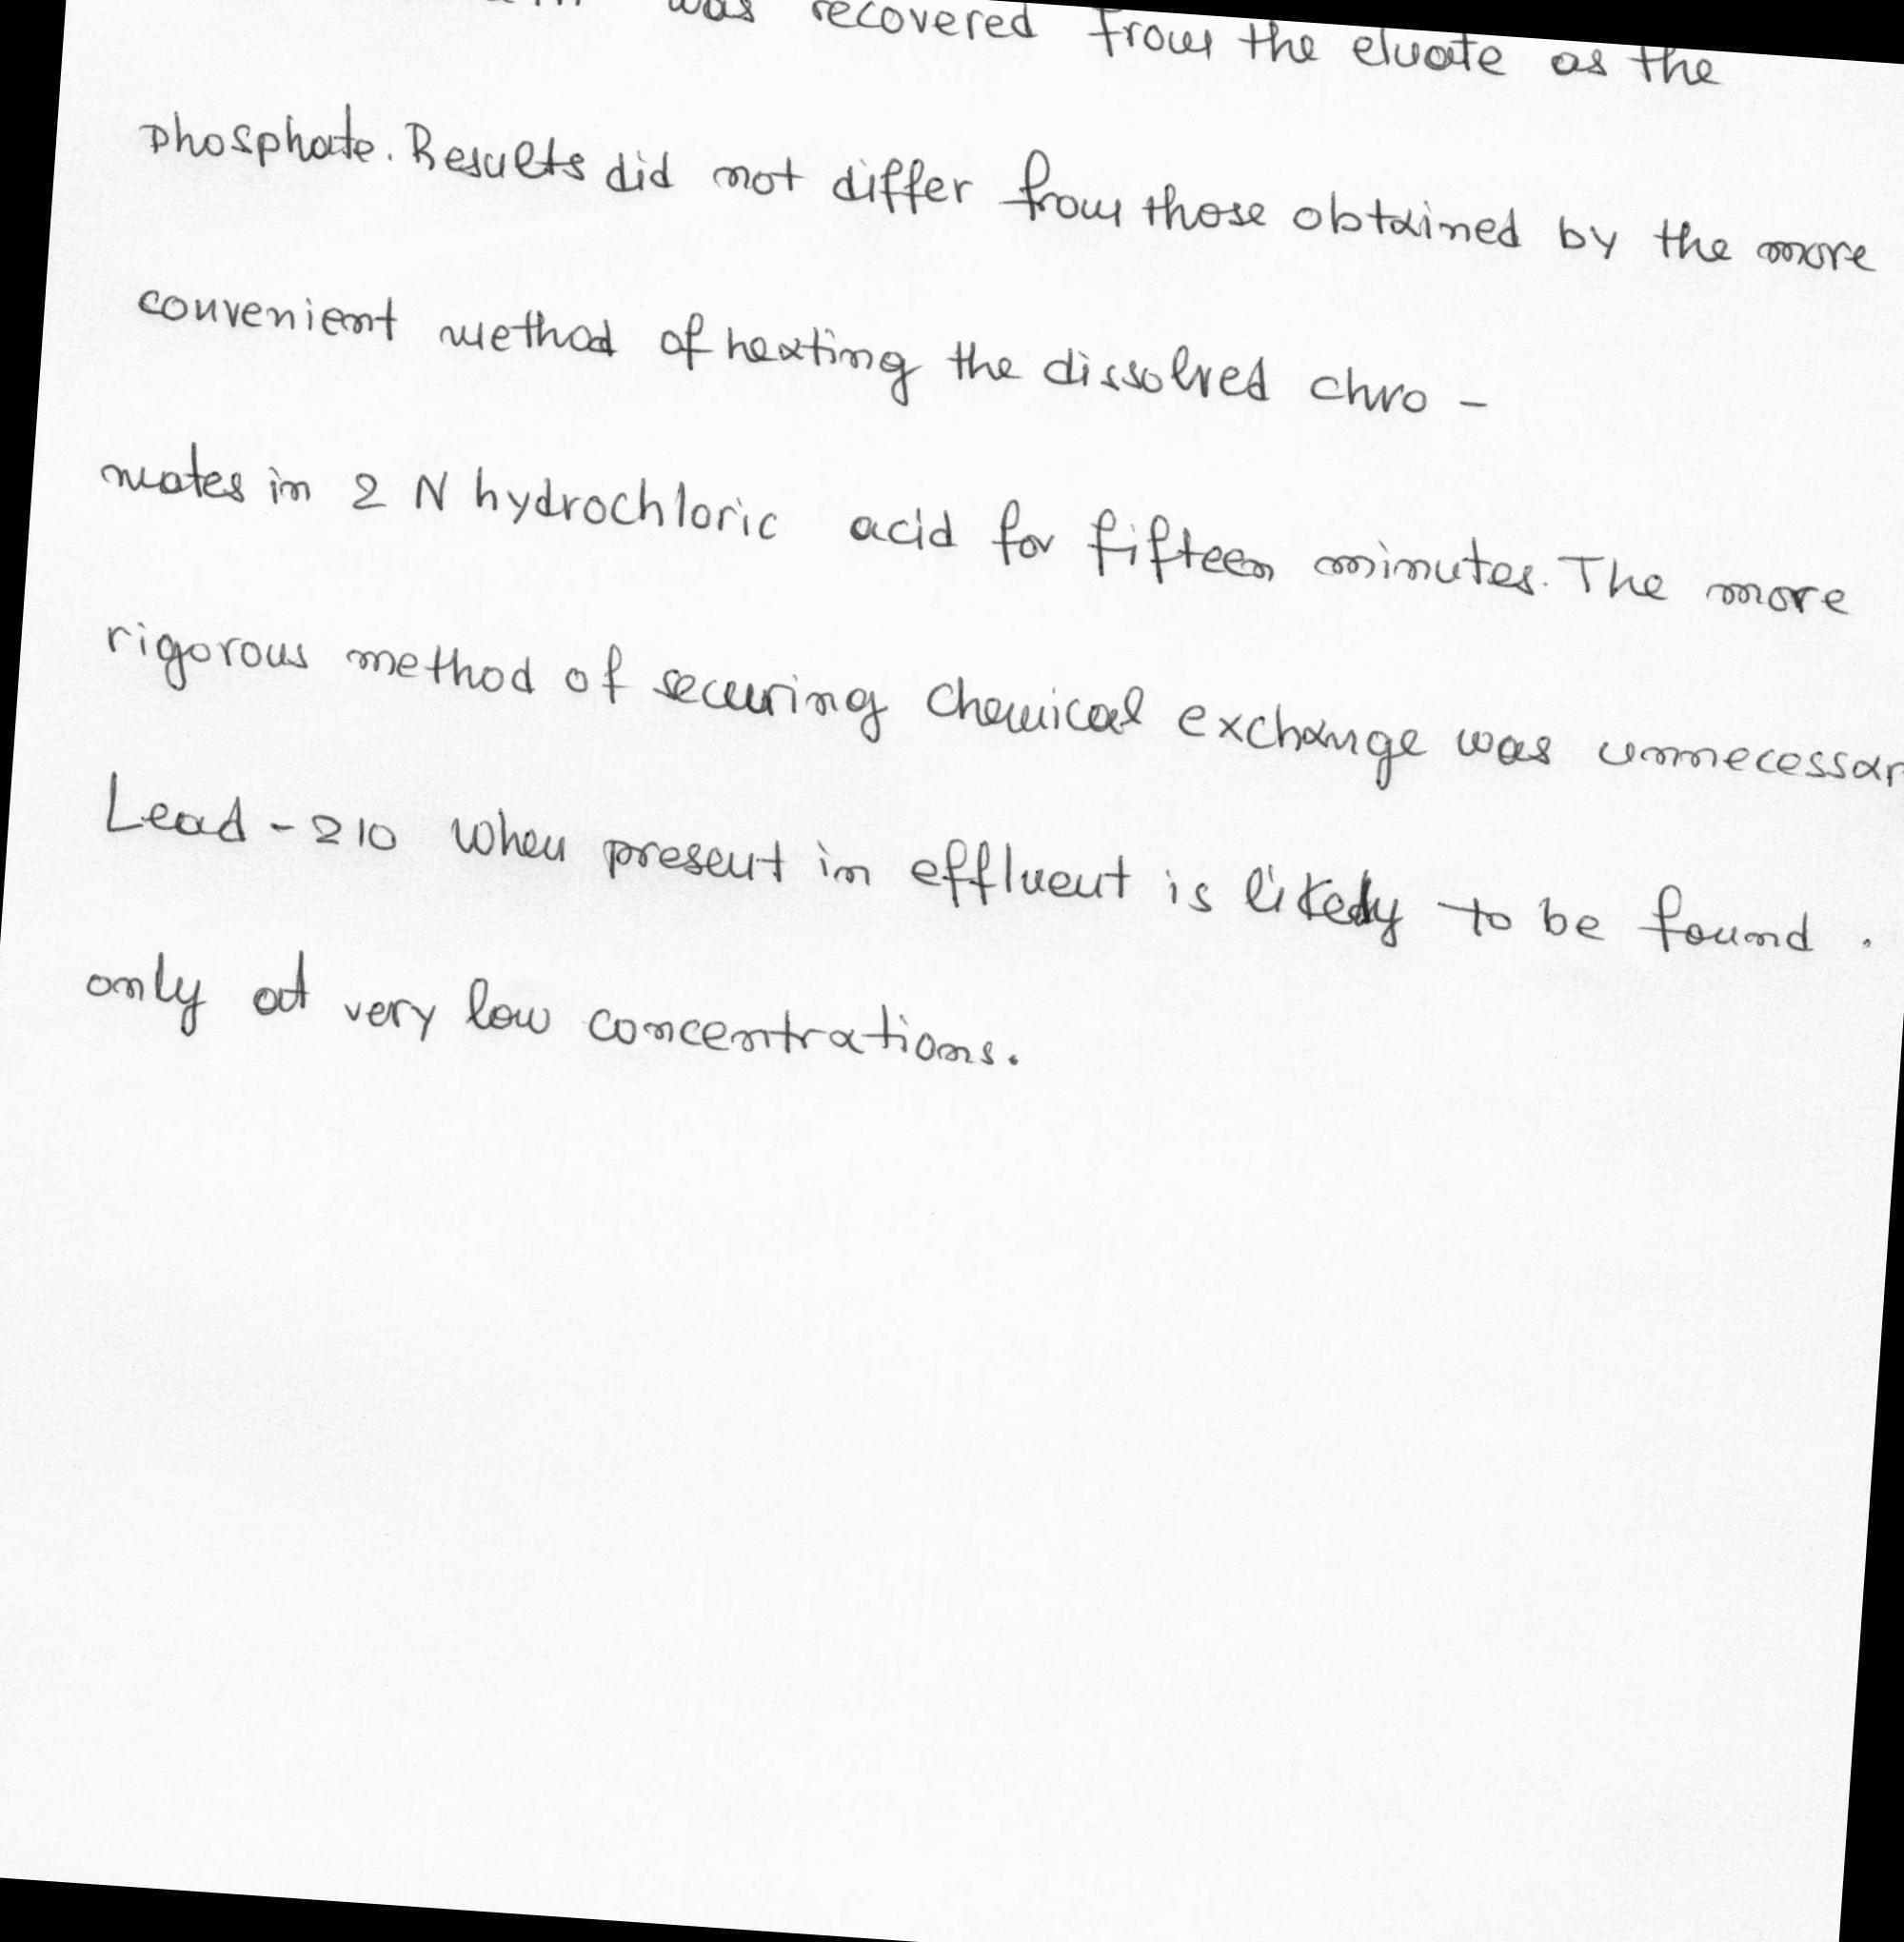 was recovered from the eluate as the
phosphate. Results did not differ from those obtained by the more
convenient method of heating the dissolved chro -
mates in 2 N hydrochloric acid for fifteen minutes. The more
rigorous method of securing chemical exchange was unnecessar
Lead - 210 when present in effluent is likely to be found .
only at very low concentrations.